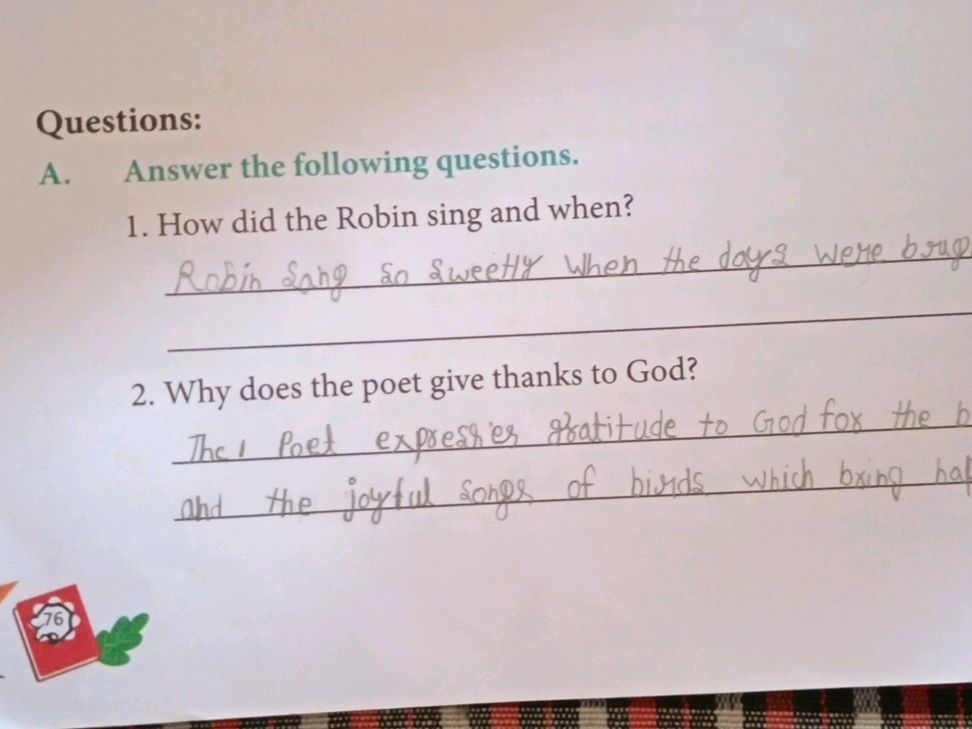 Questions:
A. Answer the following questions.
1. How did the Robin sing and when?
Robin Sang so sweetly when the days were
2. Why does the poet give thanks to God?
The Poet expresses gratitude to God for the
and the joyful songs of birds which bring
76